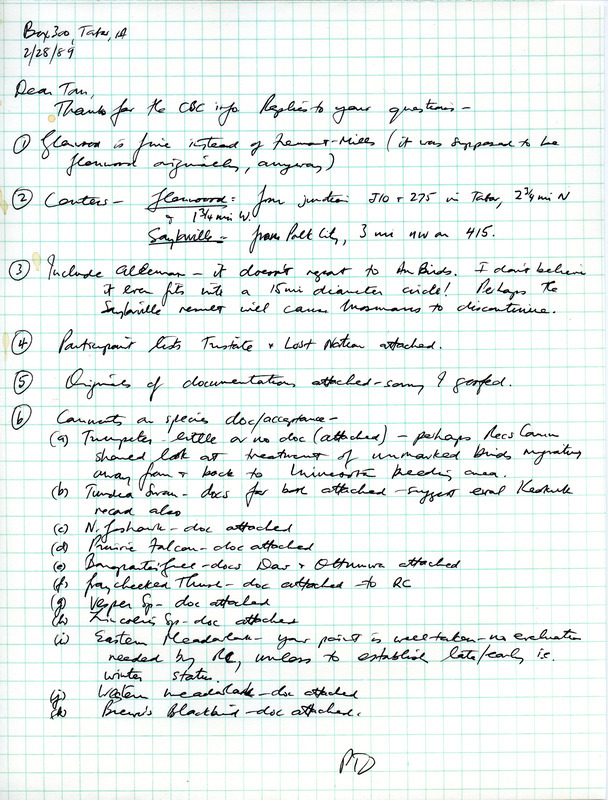 Box 300, Tabor, IA
2/28/89
Dear Tom,
Thanks for the CBC info. Replies to your questions -
① Glenwood is fine instead of Fremont-Mills (it was supposed to be
glenwood originally, anyway)
② Centers - Glenwood: from junction J10 + 275 in Tabor, 2 3/4 mi N
+ 1 3/4 mi W.
Saylorville - from Polk City, 3 mi NW on 415.
③ Include Alleman - it doesn't report to Am Birds. I don't believe
it even fits into a 15 mi diameter circle! Perhaps the
Saylorville result will cause Mosmans to discontinue.
④ Participant lists Tristate + Lost Nation attached.
⑤ Originals of documentations attached - sorry I goofed.
⑥ Comments on species doc/acceptance -
(a) Trumpeter - little or no doc (attached) - perhaps Recs Comm
should look at treatment of unmarked birds migrating
away from + back to Minnesota breeding area.
(b) Tundra Swan - docs for both attached - suggest eval Keokuk
record also
(c) N. Goshawk - doc attached
(d) Prairie Falcon - doc attached
(e) docs Dav + Ottumwa attached
(f) Graycheeked Thrush - doc attached to RC
(g) Vesper Sp - doc attached
(h) Lincoln's Sp - doc attached
(i) Eastern Meadowlark - your point is well taken - no evaluation
needed by RC, unless to establish late/early ie.
winter status.
(j) Western meadowlark - doc attached
(k) Brewer's Blackbird - doc attached.